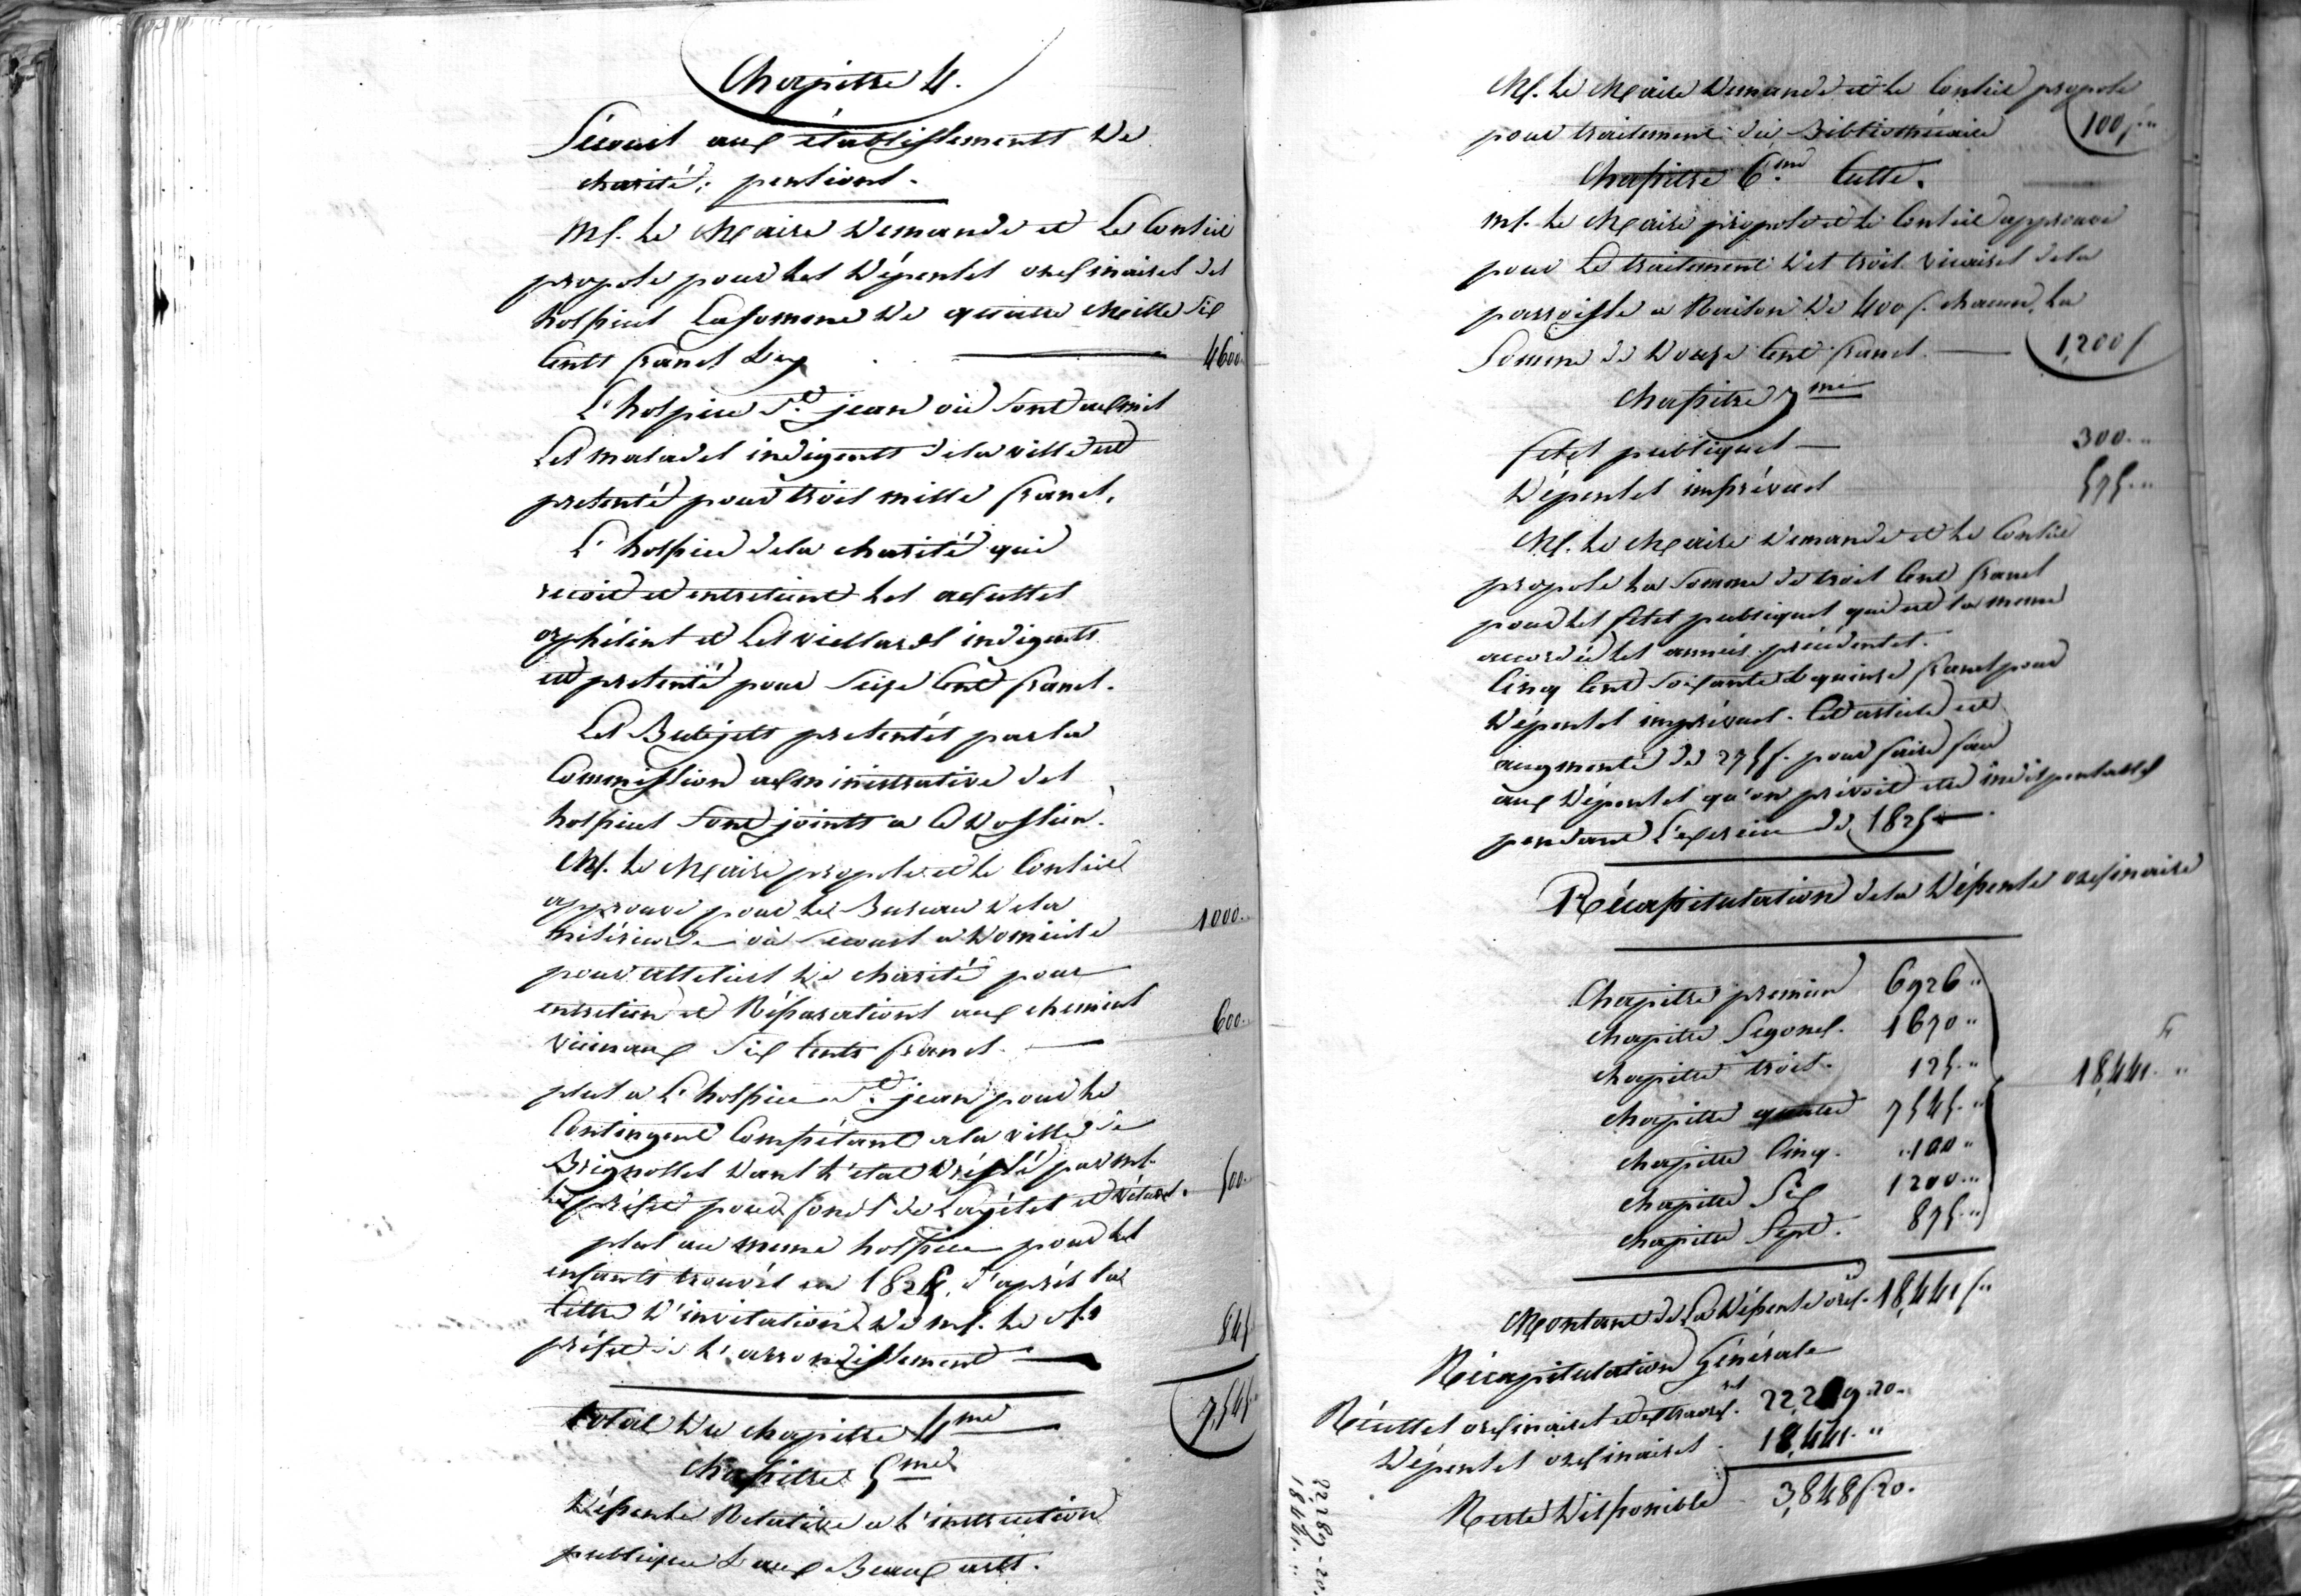 Chapitre 4.
Secours aux établissements de
charité; pensions.
Mr. le Maire demande et le Conseil
propose pour les dépenses ordinaires des
hospices la somme de quatre mille six
Cents francs 4600
L'hospice St. jean où sont admis
les malades indigents de la ville est
présenté pour trois mille francs.
L'hospice de la charité qui
reçoit et entretient les adultes
orphélins et les viellards indigents
est présenté pour seize Cent francs.
Les Budjets présentés par la
Commission administrative des
hospices sont joints a ce dossier.
Mr. le Maire propose et le Conseil
approuve pour le Bureau de la
miséricorde où secours a domicile 1000
pour atteliers de charité pour
entretien et Réparations aux chemins
viçinaux six Cents francs. 600
plus a l'hospice St. jean pour le
Contingent Compétant a la ville de
Brignolles dans l'état réglé par mr.
le préfet pour fonds de Layétes et vétures. 500
plus au meme hospice pour les
enfants trouvés en 1825, d'après la
lettre d'invitation de mr. le s.
préfet de l'arrondissement 845
total du chapitre 4me 7,545
Chapitre 5me
Dépense Relative a l'instruction
publique & aux Beaux arts.
Mr. le Maire demande et le Conseil propose
pour traitement du Bibliothécaire 100f"
Chapitre 6me Culte.
mr. le Maire propose et le Conseil approuve
pour le traitement des trois vicaires de la
parroisse a Raison de 400f. chacun, la
Somme de douze Cent francs. 1,200f
Chapitre 7me
fetes publiques 300"
Dépenses imprévues 575"
Mr. le Maire demande et le Conseil
propose la somme de trois Cent francs
pour les fetes publiques qui est la meme
accordée les années précédentes.
Cinq Cent soixante & quinze francs pour
dépenses imprévues. Cet article est
augmenté de 275f. pour faire face
aux dépenses qu'on prévoit etre indispensables
pendant l'exercice de 1825
Récapitulation de la Dépense ordinaire
Chapitre premier 6926"
chapitre Segond. 1670"
chapitre trois. 125"
chapitre quatre 7545" 18,441"
chapitre Cinq. 100"
chapitre Six 1200"
chapitre Sept. 875"
Montant de la Dépense ord. 18,441f"
Récapitulation Générale
Récettes ordinaires et extraord. 22,289.20
Dépenses ordinaires 18,441"
Reste Disponible 3,848f20.
22,289-20
18441"